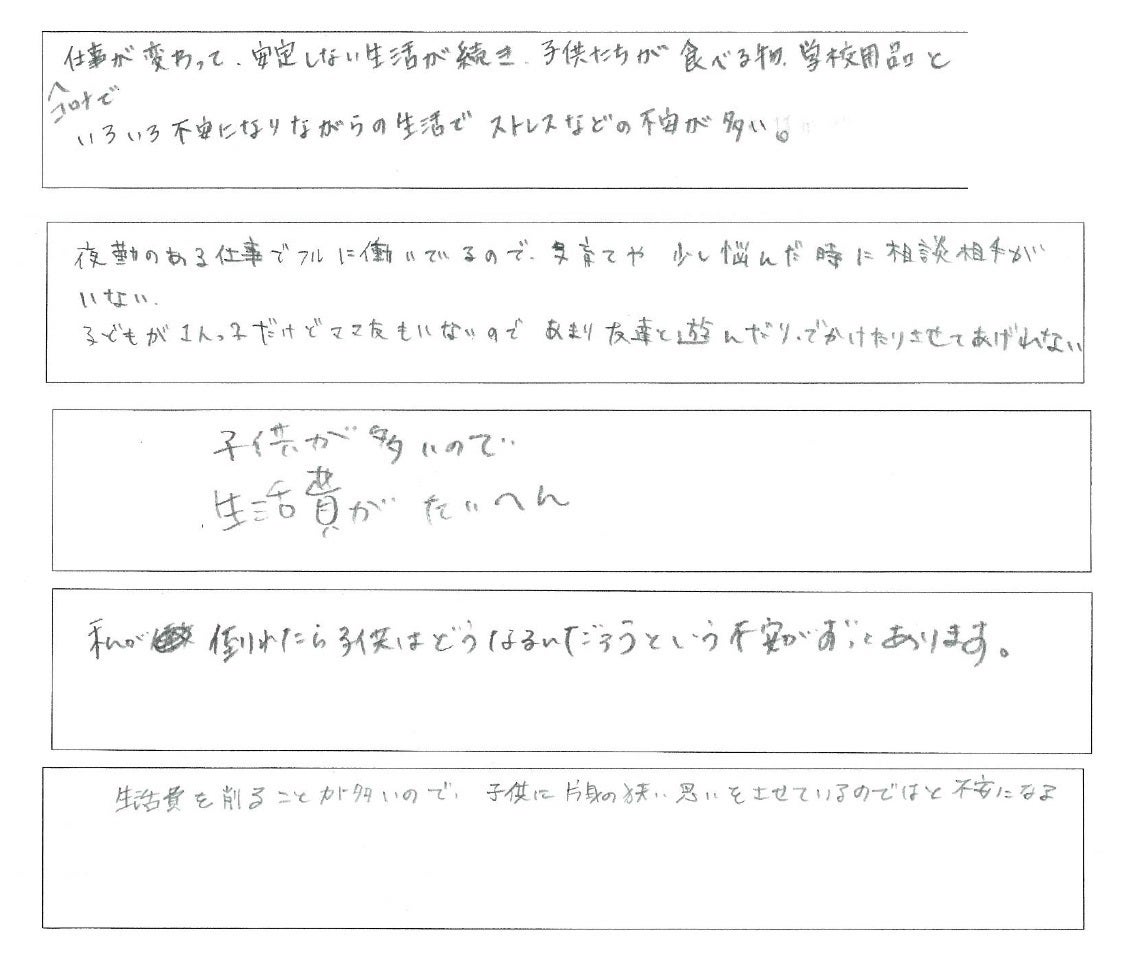 仕事が変わって、安定しない生活が続き、子供たちが食べる物、学校用品と
コロナで
いろいろ不安になりながらの生活でストレスなどの不安が多い。
夜勤のある仕事でフルに働いているので、子育てや 少し悩んだ時に相談相手が
いない。
子どもが1人っ子だけどママ友もいないので あまり友達と遊んだり、でかけたりさせてあげれない
子供が多いので
生活費が たいへん
私が 倒れたら子供はどうなるんだろうという不安がずっとあります。
生活費を削ることが多いので、子供に片身の狭い思いをさせているのではと不安になる